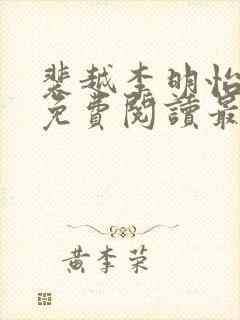 裴越李明怡
免費閱讀最
黃李荣